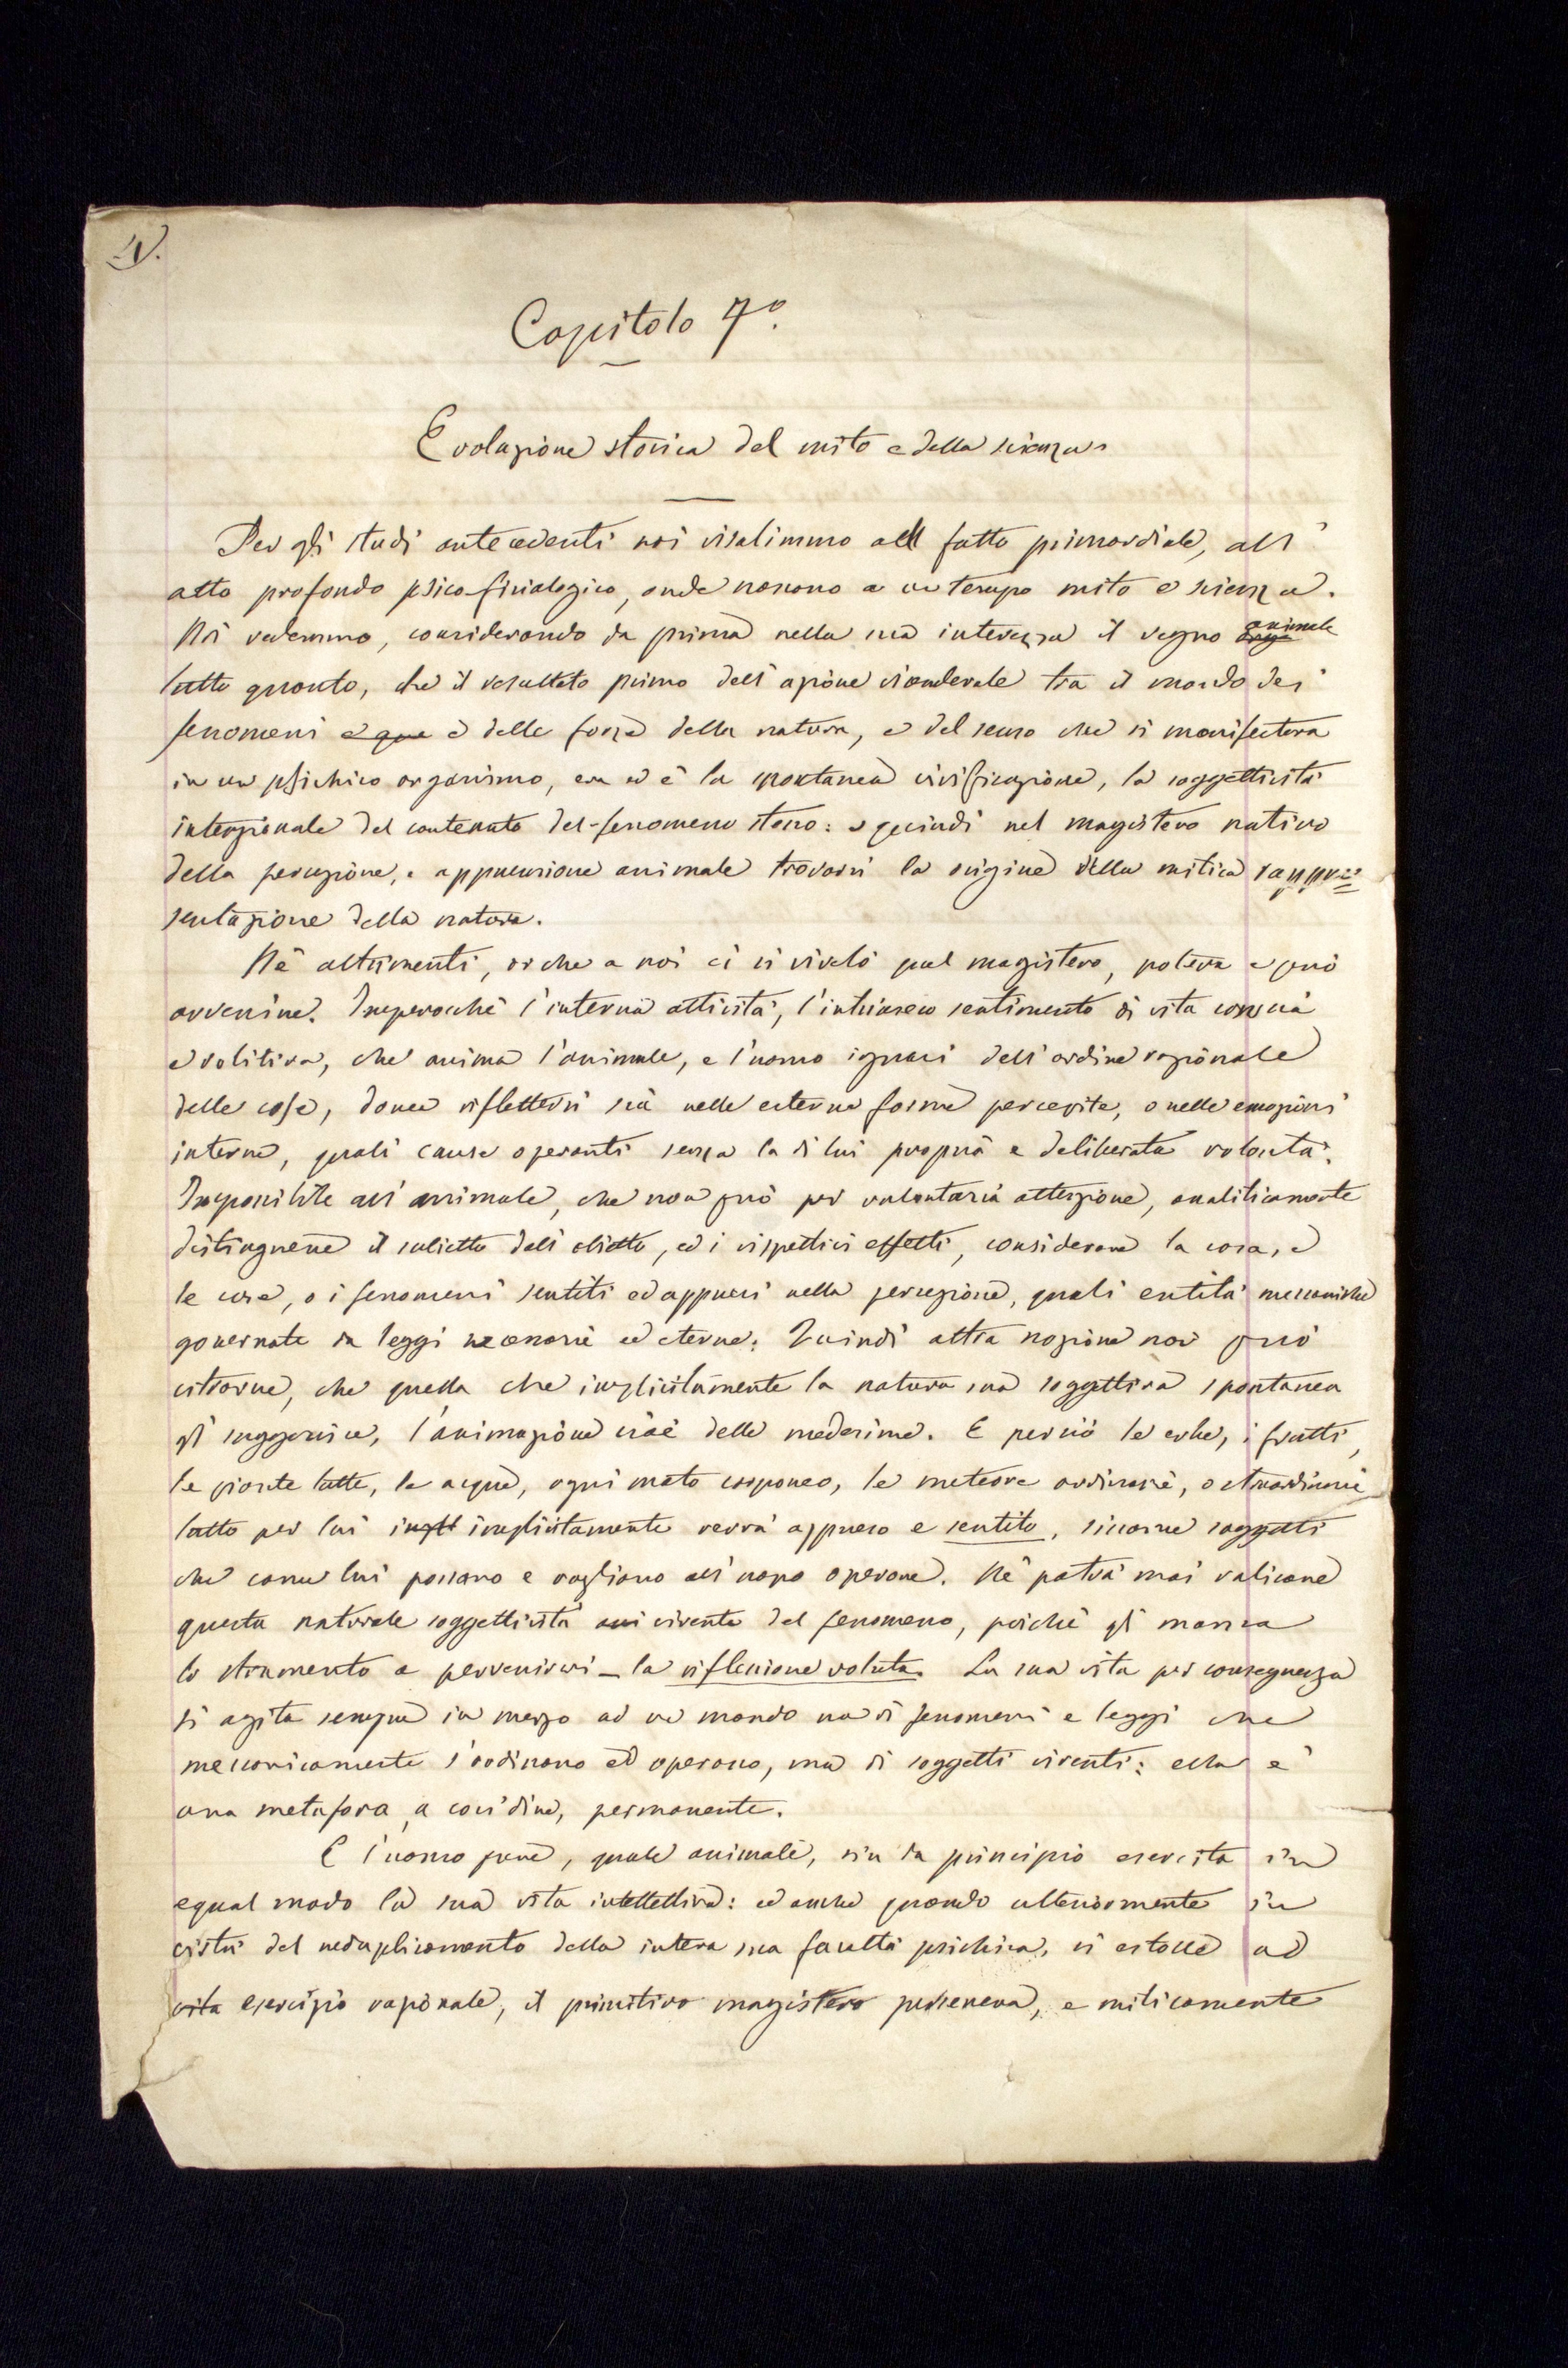 Capitolo 7º.
Evoluzione storica del mito e della scienza
Per gli studi antecedenti noi risalimmo all fatto primordiale, all'
atto profondo psico-fisiologico, onde nascono a un tempo mito e scienza.
Noi vedemmo, considerando da prima nella sua interezza il regno animale
tutto quanto, che il resultato primo dell' azione vicendevole tra il mondo dei
fenomeni e que e delle forze della natura, e del senso che si manifestava
in un psichico organismo, era ed è la spontanea vivificazione, la soggettività
intenzionale del contenuto del fenomeno stesso: e quindi nel magistero nativo
della percezione, e apprensione animale trovarsi la origine della mitica rappre=
sentazione della natura.
Nè altrimenti, or che a noi ci si rivelò quel magistero, poteva e può
avvenire. Imperocchè l'interna attività, l'intrinseco sentimento di vita conscia
e volitiva, che anima l'animale, e l'uomo ignari dell'ordine razionale
delle cose, dovea riflettersi sia nelle esterne forme percepite, o nelle emozioni
interne, quali cause operanti senza la di lui propria e deliberata volontà.
Impossibile all'animale, che non può per volontaria attenzione, analiticamente
distinguere il subietto dell'obietto, ed i rispettivi effetti, considerare la cosa, e
le cose, o i fenomeni sentiti ed appresi nella percezione, quali entità meccaniche
governate da leggi necessarie ed eterne: Quindi altra nozione non può
estrarne, che quella che implicitamente la natura sua soggettiva spontanea
gli suggerisce, l'animazione cioè delle medesime. E perciò le erbe, i frutti,
le piante tutte, le acque, ogni moto corporeo, le meteore ordinarie, o straordinarie
tutto per lui implicitamente verrà appreso e sentito, siccome soggetti
che come lui possano e vogliono all'uopo operare. Nè potrà mai valicare
questa naturale soggettività vivente del fenomeno, poichè gli manca
lo strumento a pervenirvi – la riflessione voluta. La sua vita per conseguenza
si agita sempre in mezzo ad un mondo non di fenomeni e leggi che
meccanicamente s'ordinano ed operano, ma di soggetti viventi: ella è
una metafora, a così dire, permanente.
E l'uomo pure, quale animale, sin da principio esercita in
egual modo la sua vita intellettiva: ed anche quando ulteriormente in
virtù del reduplicamento della intera sua facoltà psichica, si estolle ad
vita esercizio razionale, il primitivo magistero persevera, e miticamente